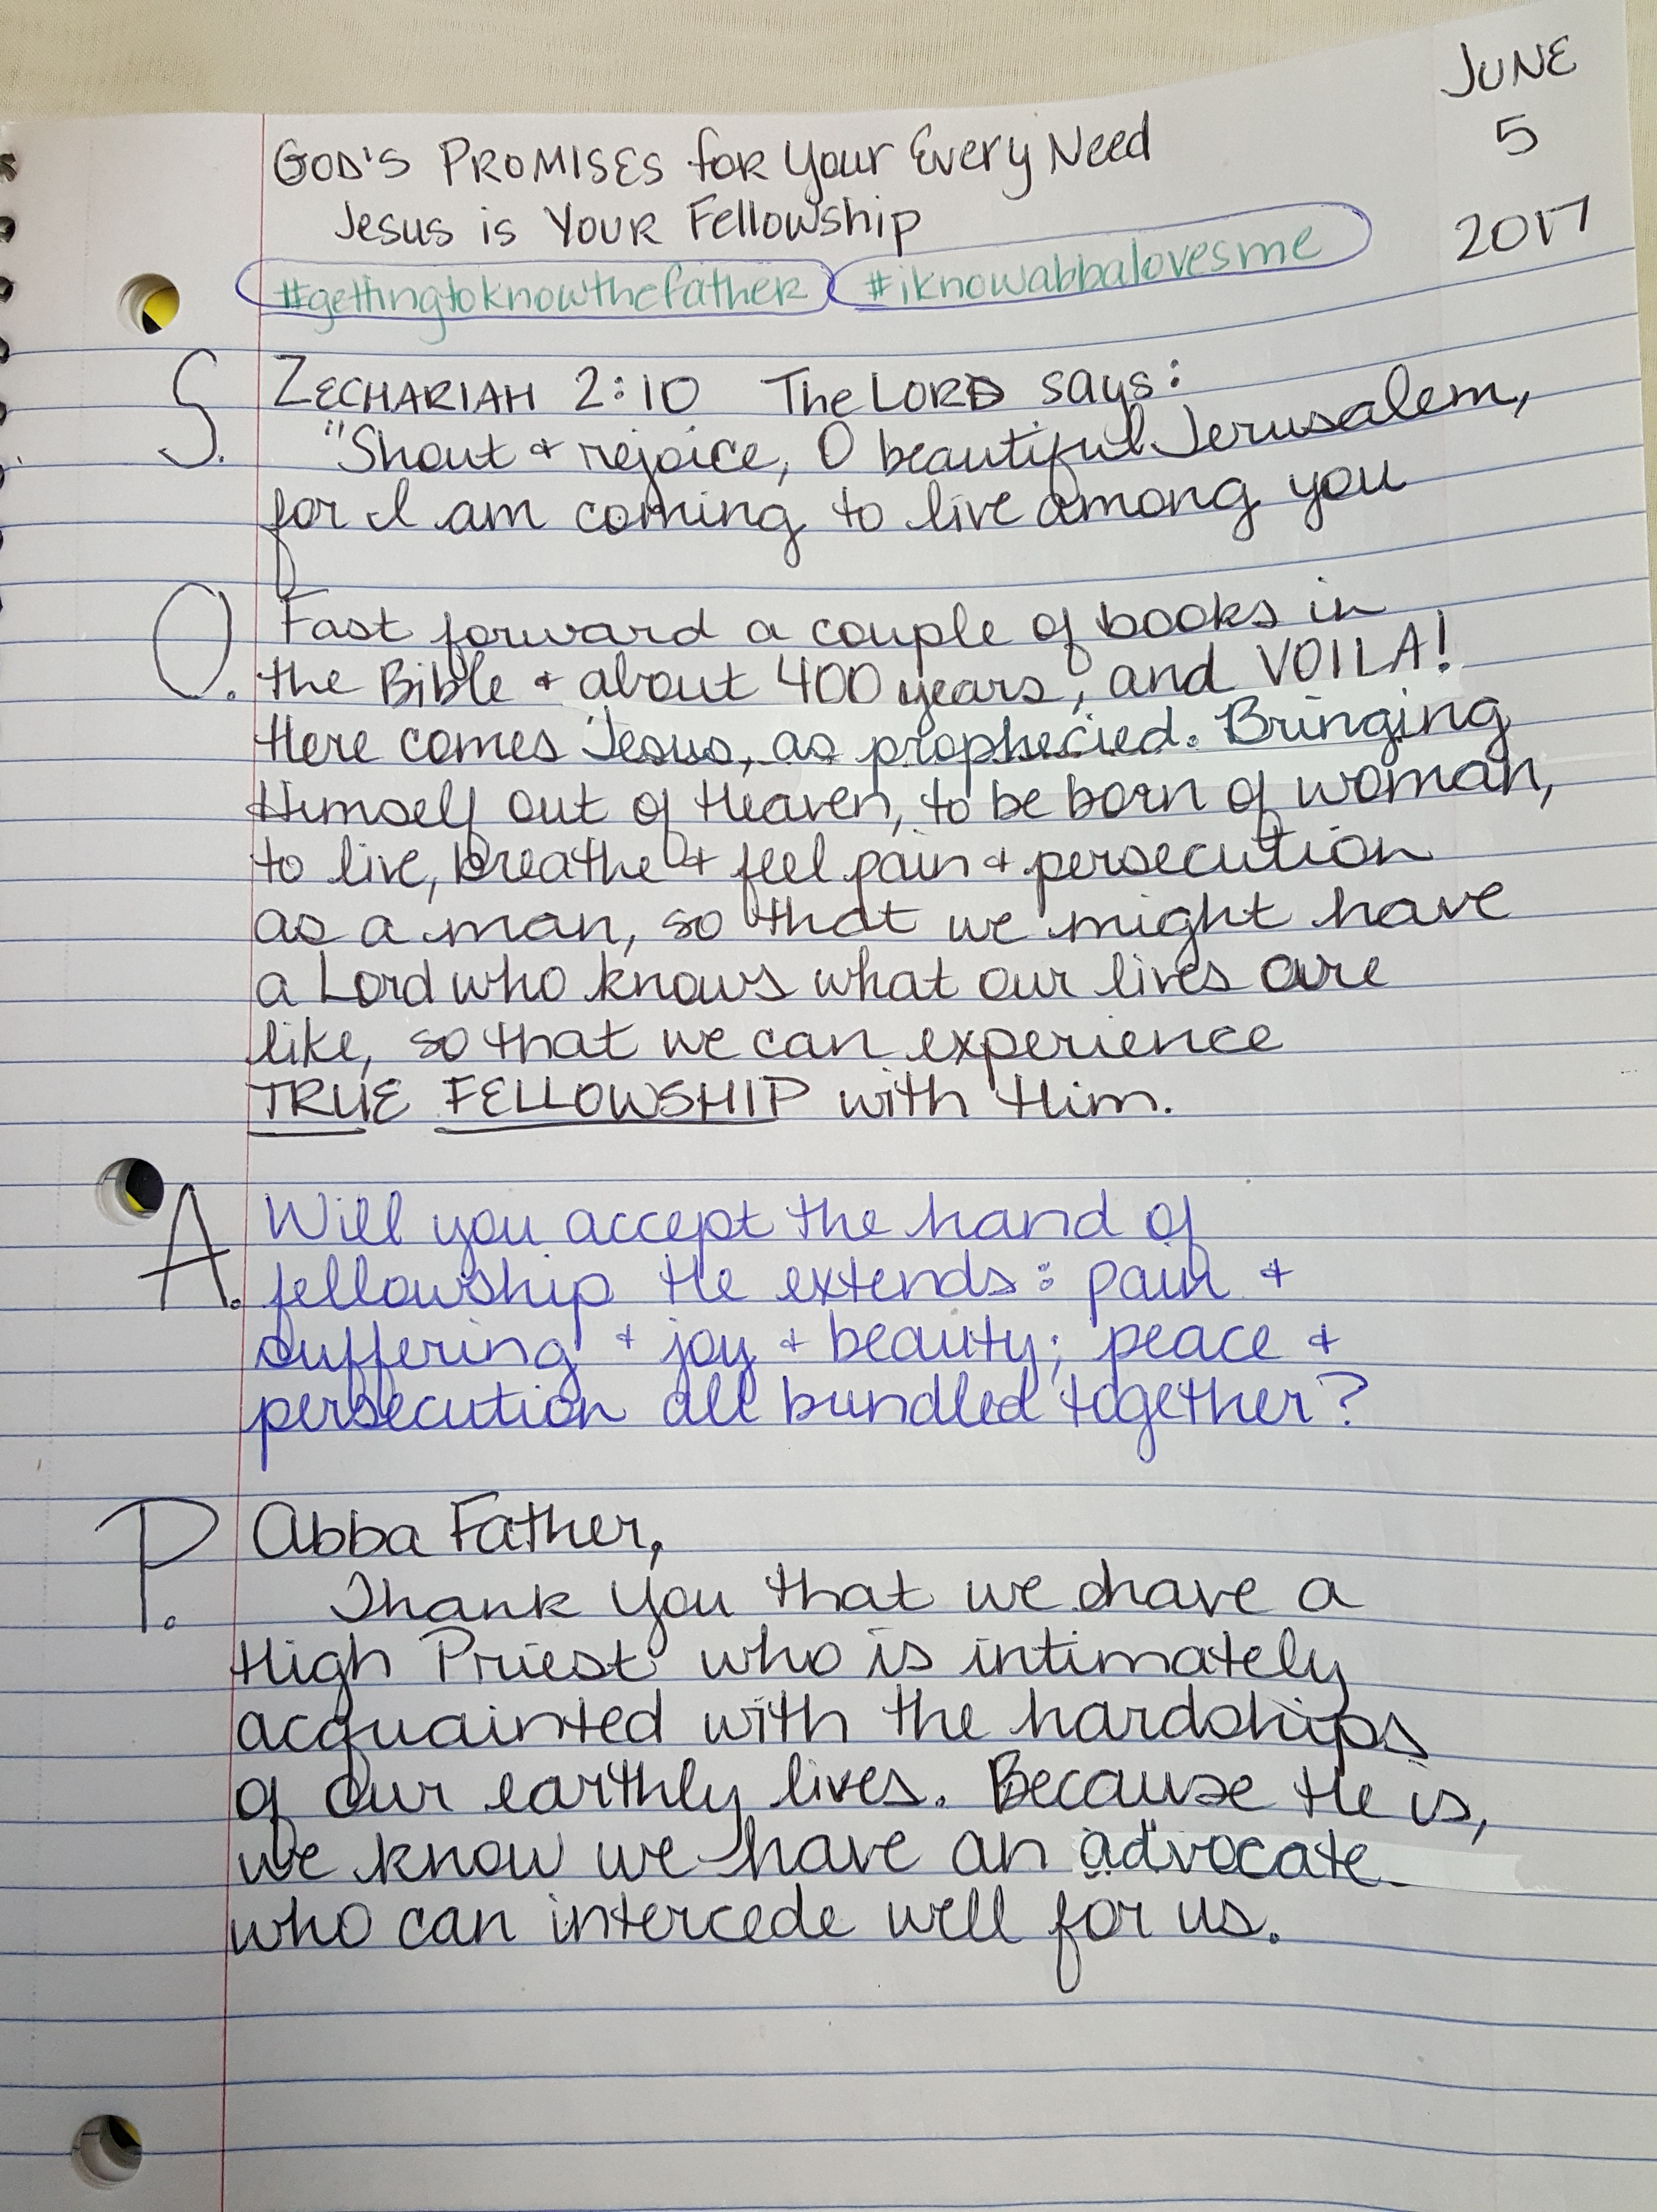 JUNE
5
2017
GOD'S PROMISES for Your Every Need
Jesus is Your Fellowship
#gettingtoknowthefather #iknowabbalovesme
S. ZECHARIAH 2:10 The LORD says:
"Shout & rejoice, O beautiful Jerusalem,
for I am coming to live among you
O. Fast forward a couple of books in
the Bible & about 400 years, and VOILA!
Here comes Jesus, as prophecied. Bringing
Himself out of Heaven, to be born of woman,
to live, breathe & feel pain & persecution
as a man, so that we might have
a Lord who knows what our lives are
like, so that we can experience
TRUE FELLOWSHIP with Him.
A. Will you accept the hand of
fellowship He extends: pain &
suffering & joy & beauty; peace &
persecution all bundled together?
P. Abba Father,
Thank You that we have a
High Priest who is intimately
acquainted with the hardships
of our earthly lives. Because He is,
we know we have an advocate
who can intercede well for us.